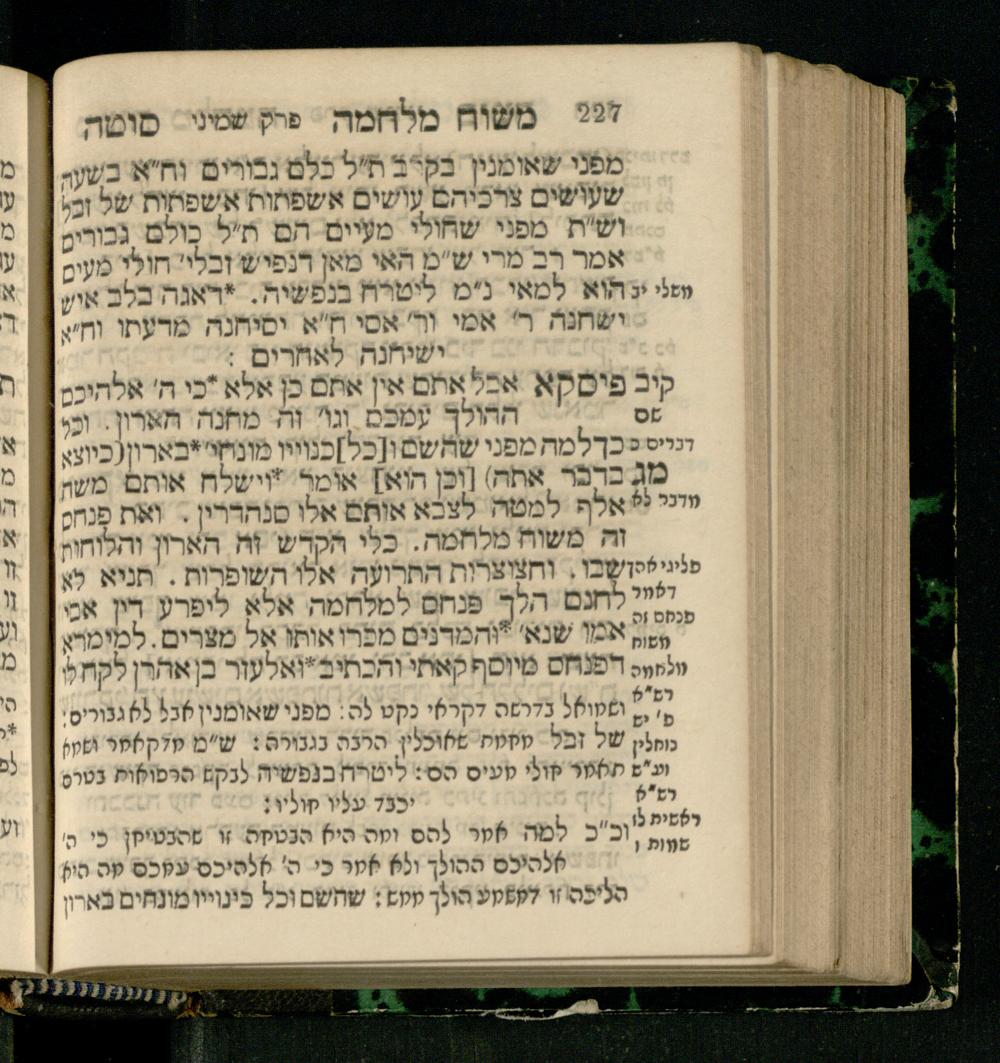 227 משוח מלחמה פרק שמיני סוטה
מפני שאומנין בקרב ת״ל כלם גבורים וח״א בשעה
שעושים צרכיהם עושים אשפתות אשפתות של זבל
וש״ת מפני שחולי מעיים הם ת״ל כולם גבורים
אמר רב מרי ש״מ האי מאן דנפיש זבלי׳ חולי מעים
משלי יב
הוא למאי נ״מ ליטרח בנפשיה. *דאגה בלב איש
ישחנה ר׳ אמי ור׳ אסי ח״א יסיחנה מדעתו וח״א
ישיחנה לאחרים :
קיב פיסקא אבל אתם אין אתם כן אלא *כי ה׳ אלהיכם
שם
ההולך עמכם וגו׳ זה מחנה הארון. וכל
דברים כ
כך למה מפני שהשם ו[כל] כנוייו מונחי׳ *בארון (כיוצא
מג בדבר אתה) [וכן הוא] אומר *וישלח אותם משה
מדבר לא
אלף למטה לצבא אותם אלו סנהדרין. ואת פנחס
זה משוח מלחמה. כלי הקדש זה הארון והלוחות
שבו. וחצוצרות התרועה אלו השופרות. תניא לא
לחנם הלך פנחס למלחמה אלא ליפרע דין אבי
אמו שנא׳ *והמדנים מכרו אותו אל מצרים. למימרא
דפנחס מיוסף קאתי והכתיב *ואלעזר בן אהרן לקח לו
דאמר
פנחס זה
משוח
מלחמה
רש״א
פ׳ יש
נוחלין
וע״ש
רש״א
ראשית לו
שמות ו
ושמואל בדרשה דקראי נקט לה: מפני שאומנין אבל לא גבורים:
של זבל מחמת שאוכלין הרבה בגבורה: ש״מ מדקאמר ושמא
תאמר חולי מעים הם: ליטרח בנפשיה לבקש הרפואות בטרם
יכבד עליו חוליו:
וכ״כ למה אמר להם ומה היא הבטחה זו שהבטיחן כי ה׳
אלהיכם ההולך ולא אמר כי ה׳ אלהיכם עמכם מה היא
הליכה זו דמשמע הולך ממש: שהשם וכל כינוייו מונחים בארון